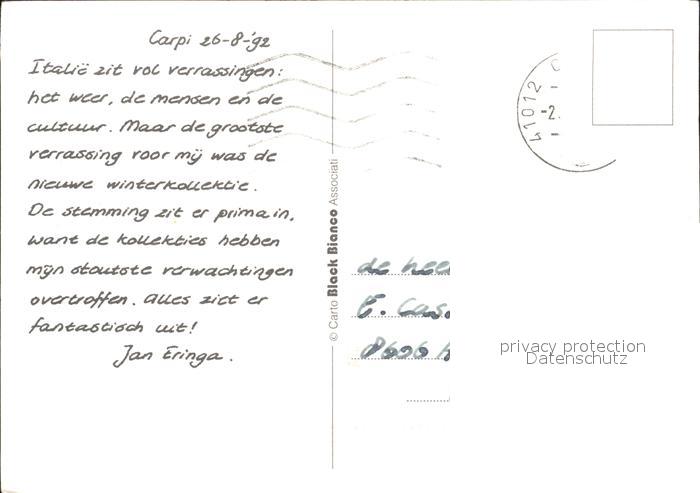 Carpi 26-8-'92
Italië zit vol verrassingen:
het weer, de mensen en de
cultuur. Maar de grootste
verrassing voor mij was de
nieuwe winterkollektie.
De stemming zit er prima in,
want de kollekties hebben
mijn stoutste verwachtingen
overtroffen. Alles ziet er
fantastisch uit!
Jan Eringa.
© Carto Black Bianco Associati
41012
-2.
de hee
E. Cas.
privacy protection
Datenschutz